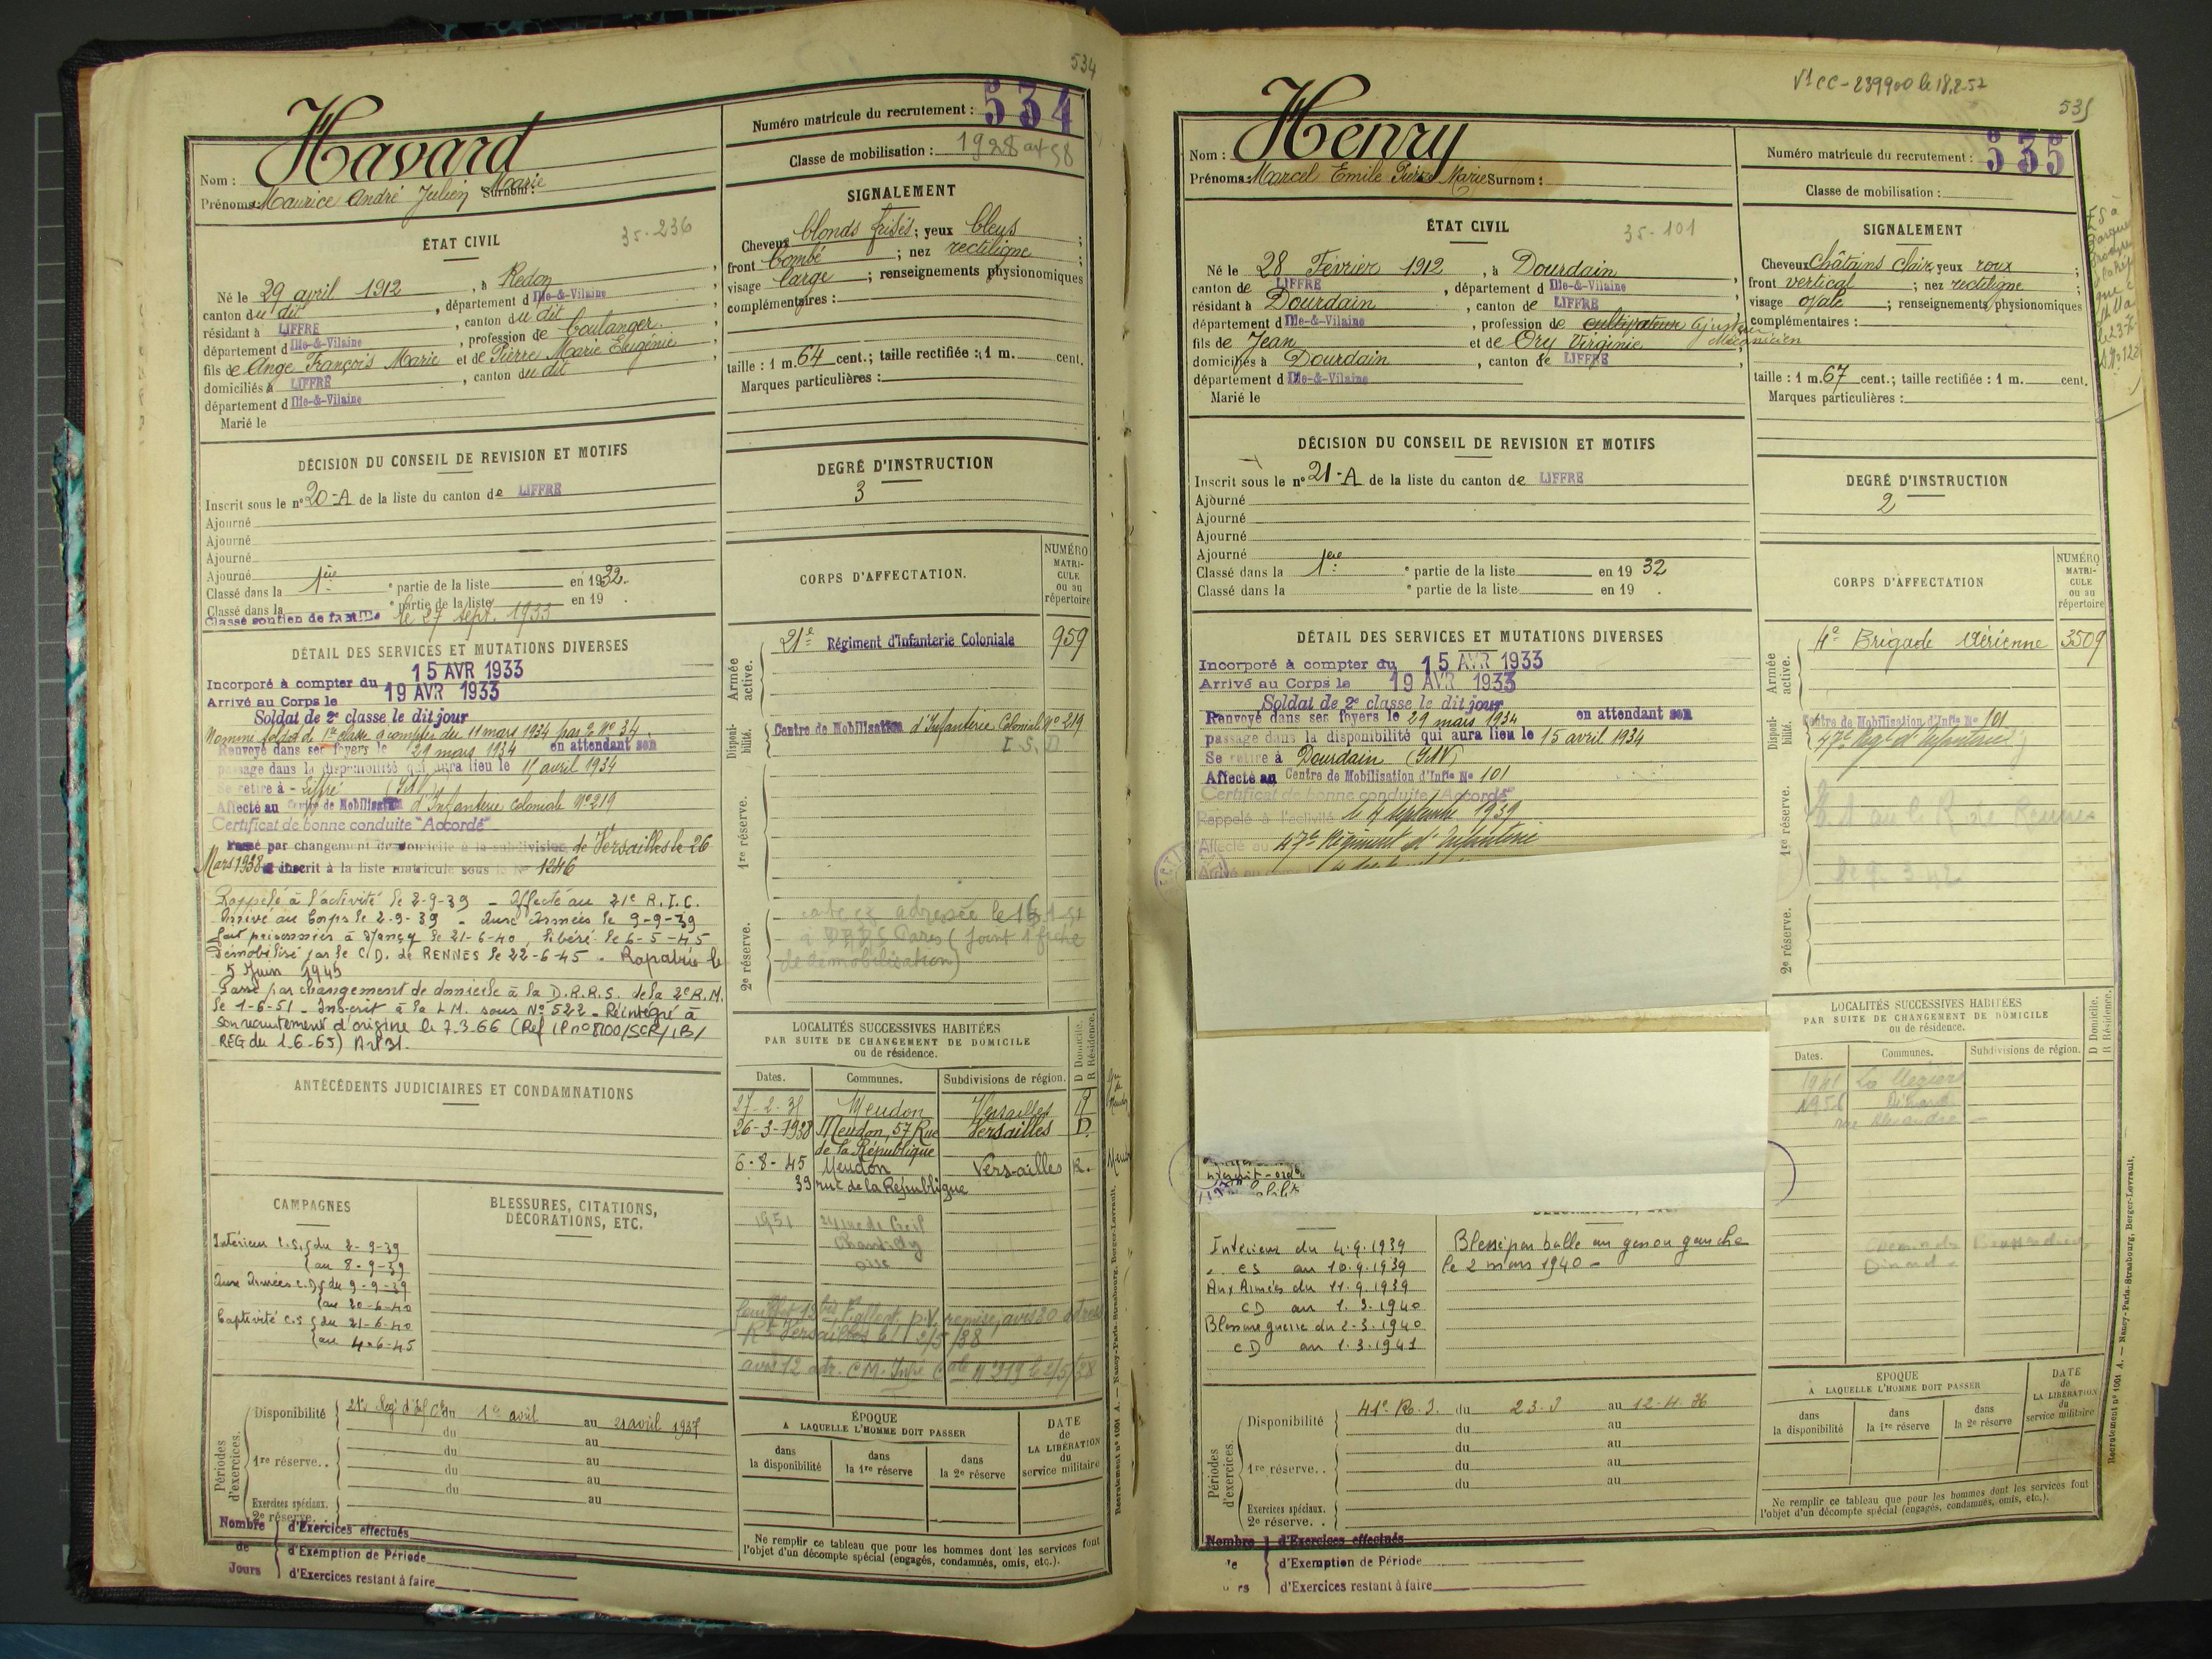 534
Havard
Nom :
Prénoms : Maurice André Julien Marie Surnom :
Numéro matricule du recrutement : 534
Classe de mobilisation : 1928
ÉTAT CIVIL
35-236
Né le 29 avril 1912, à Redon
canton du dit, département d Ille-&-Vilaine
résidant à LIFFRÉ, canton du dit
département d Ille-&-Vilaine, profession de boulanger.
fils de Ange François Marie et de Pierre Marie Eugénie
domiciliés à LIFFRÉ, canton du dit
département d Ille-&-Vilaine
Marié le
SIGNALEMENT
Cheveux blonds frisés ; yeux bleus ;
front bombé ; nez rectiligne ;
visage large ; renseignements physionomiques
complémentaires :
taille : 1 m. 64 cent. ; taille rectifiée : 1 m. cent.
Marques particulières :
DÉCISION DU CONSEIL DE REVISION ET MOTIFS
Inscrit sous le n° 20-A de la liste du canton de LIFFRÉ
Ajourné
Ajourné
Ajourné
Ajourné
Classé dans la 1ère partie de la liste en 1932.
Classé dans la e partie de la liste en 19 .
Classé soutien de famille le 27 sept. 1933
DEGRÉ D'INSTRUCTION
3
DÉTAIL DES SERVICES ET MUTATIONS DIVERSES
Incorporé à compter du 15 AVR 1933
Arrivé au Corps le 19 AVR 1933
Soldat de 2e classe le dit jour
Nommé soldat de 1re classe à compter du 11 mars 1934 par O. N° 34
Renvoyé dans ses foyers le 29 mars 1934 en attendant son
passage dans la disponibilité qui aura lieu le 15 avril 1934
Se retire à Liffré (I&V)
Affecté au Centre de Mobilisation d'Infanterie Coloniale N° 219
Certificat de bonne conduite "Accordé"
Passé par changement de domicile à la subdivision de Versailles le 26
Mars 1938 et inscrit à la liste matricule sous le N° 1246
Rappelé à l'activité le 2-9-39 - Affecté au 21e R.I.C.
Arrivé au Corps le 2-9-39 - Aux Armées le 9-9-39
Fait prisonnier à Nancy le 21-6-40, libéré le 6-5-45
Démobilisé par le C.D. de RENNES le 22-6-45. Rapatrié le
5 Juin 1945
Passé par changement de domicile à la D.R.R.S. de la 2e R.M.
le 1-6-51 - Inscrit à la L.M. sous N° 522 - Réintégré à
son recrutement d'origine le 7.3.66 (Ref IP n° 8100/SCR/1B/
REG du 1-6-65) Art 31.
CORPS D'AFFECTATION.
NUMÉRO MATRICULE ou au répertoire
Armée active.
21e Régiment d'Infanterie Coloniale 959
Disponibilité.
Centre de Mobilisation d'Infanterie Coloniale N° 219
1re réserve.
2e réserve.
adressée le
Paris (Joint 1 fiche
de démobilisation)
ANTÉCÉDENTS JUDICIAIRES ET CONDAMNATIONS
LOCALITÉS SUCCESSIVES HABITÉES
PAR SUITE DE CHANGEMENT DE DOMICILE
ou de résidence.
Dates. Communes. Subdivisions de région. D Domicile. R Résidence.
Meudon Versailles R
26-3-1938 Meudon, 57 Rue Versailles D.
de la République
6-8-45 Meudon Versailles R.
39 rue de la République
1951 rue de Creil
Chantilly
Oise
CAMPAGNES
Intérieur C.S. du 2-9-39
au 8-9-39
Aux Armées C.D du 9-9-39
au 20-6-40
Captivité C.S du 21-6-40
au 4-6-45
BLESSURES, CITATIONS,
DÉCORATIONS, ETC.
Périodes d'exercices.
Disponibilité 21e Reg d'Inf Cle du 1er avril au 21 avril 1937
du au
1re réserve.. du au
du au
du au
Exercices spéciaux.
2e réserve.
Nombre de Jours
d'Exercices effectués
d'Exemption de Période
d'Exercices restant à faire
ÉPOQUE
A LAQUELLE L'HOMME DOIT PASSER
dans la disponibilité
dans la 1re réserve
dans la 2e réserve
DATE de LA LIBÉRATION du service militaire
Ne remplir ce tableau que pour les hommes dont les services font
l'objet d'un décompte spécial (engagés, condamnés, omis, etc.).
Recrutement n° 1001 A. — Nancy-Paris-Strasbourg, Berger-Levrault.
V1 CC-239900 le 18.2.52
535
Henry
Nom :
Prénoms : Marcel Emile Pierre Marie Surnom :
Numéro matricule du recrutement : 535
Classe de mobilisation :
ÉTAT CIVIL
35-101
Né le 28 Février 1912, à Dourdain
canton de LIFFRÉ, département d Ille-&-Vilaine
résidant à Dourdain, canton de LIFFRÉ
département d Ille-&-Vilaine, profession de cultivateur Ajusteur Mécanicien
fils de Jean et de Ory Virginie
domiciliés à Dourdain, canton de LIFFRÉ
département d Ille-&-Vilaine
Marié le
SIGNALEMENT
Cheveux Châtains clair, yeux roux ;
front vertical ; nez rectiligne ;
visage ovale ; renseignements physionomiques
complémentaires :
taille : 1 m. 67 cent. ; taille rectifiée : 1 m. cent.
Marques particulières :
DÉCISION DU CONSEIL DE REVISION ET MOTIFS
Inscrit sous le n° 21-A de la liste du canton de LIFFRÉ
Ajourné
Ajourné
Ajourné
Ajourné
Classé dans la 1ère partie de la liste en 1932
Classé dans la e partie de la liste en 19 .
DEGRÉ D'INSTRUCTION
2
DÉTAIL DES SERVICES ET MUTATIONS DIVERSES
Incorporé à compter du 15 AVR 1933
Arrivé au Corps le 19 AVR 1933
Soldat de 2e classe le dit jour
Renvoyé dans ses foyers le 29 mars 1934 en attendant son
passage dans la disponibilité qui aura lieu le 15 avril 1934
Se retire à Dourdain (I&V)
Affecté au Centre de Mobilisation d'Infie N° 101
Certificat de bonne conduite "Accordé"
Rappelé à l'activité le 4 septembre 1939
Affecté au 47e Régiment d'Infanterie
CORPS D'AFFECTATION
NUMÉRO MATRICULE ou au répertoire
Armée active.
4e Brigade Aérienne 3509
Disponibilité.
Centre de Mobilisation d'Infie N° 101
47e Regt d'Infanterie
1re réserve.
2e réserve.
LOCALITÉS SUCCESSIVES HABITÉES
PAR SUITE DE CHANGEMENT DE DOMICILE
ou de résidence.
Dates. Communes. Subdivisions de région. D Domicile. R Résidence.
1941 La
Dinard
Intérieur du 4.9.1939
CS au 10.9.1939
Aux Armées du 11.9.1939
CD au 1.3.1940
Blessure guerre du 2-3-1940
CD au 1.3.1941
Blessé par balle au genou gauche
le 2 mars 1940 -
Périodes d'exercices.
Disponibilité 41e R.I. du 23.3 au 12.4.36
du au
1re réserve.. du au
du au
Exercices spéciaux.
2e réserve. .
Nombre
d'Exercices effectués
d'Exemption de Période
d'Exercices restant à faire
ÉPOQUE
A LAQUELLE L'HOMME DOIT PASSER
dans la disponibilité
dans la 1re réserve
dans la 2e réserve
DATE de LA LIBÉRATION du service militaire
Ne remplir ce tableau que pour les hommes dont les services font
l'objet d'un décompte spécial (engagés, condamnés, omis, etc.).
Recrutement n° 1001 A. — Nancy-Paris-Strasbourg, Berger-Levrault.